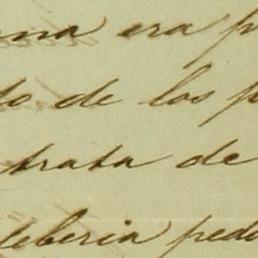 una era p
do de los p
trata de
deberia pedi